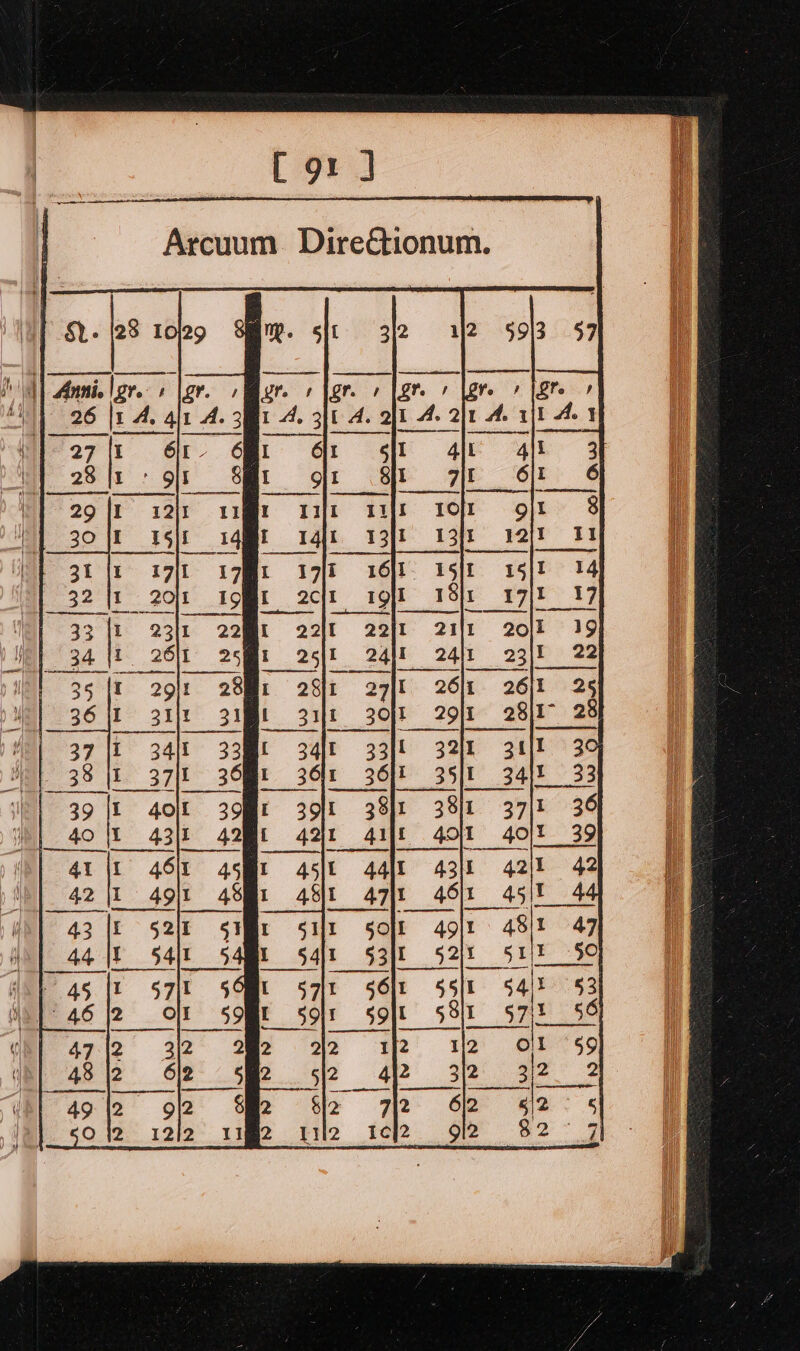 [ 91 ]
Arcuum Directionum.
♌. | 28 10 | 29 8 | ♍. 5 | 1 3 | 2 1 | 2 59 | 3 57
Anni. | gr. ′ | gr. ′ | gr. ′ | gr. ′ | gr. ′ | gr. ′ | gr. ′
26 | 1 A. 4 | 1 A. 3 | 1 A. 3 | 1 A. 2 | 1 A. 2 | 1 A. 1 | 1 A. 1
27 | 1 6 | 1 6 | 1 6 | 1 5 | 1 4 | 1 4 | 1 3
28 | 1 9 | 1 8 | 1 9 | 1 8 | 1 7 | 1 6 | 1 6
29 | 1 12 | 1 11 | 1 11 | 1 11 | 1 10 | 1 9 | 1 8
30 | 1 15 | 1 14 | 1 14 | 1 13 | 1 13 | 1 12 | 1 11
31 | 1 17 | 1 17 | 1 17 | 1 16 | 1 15 | 1 15 | 1 14
32 | 1 20 | 1 19 | 1 20 | 1 19 | 1 18 | 1 17 | 1 17
33 | 1 23 | 1 22 | 1 22 | 1 22 | 1 21 | 1 20 | 1 19
34 | 1 26 | 1 25 | 1 25 | 1 24 | 1 24 | 1 23 | 1 22
35 | 1 29 | 1 28 | 1 28 | 1 27 | 1 26 | 1 26 | 1 25
36 | 1 31 | 1 31 | 1 31 | 1 30 | 1 29 | 1 28 | 1 28
37 | 1 34 | 1 33 | 1 34 | 1 33 | 1 32 | 1 31 | 1 30
38 | 1 37 | 1 36 | 1 36 | 1 36 | 1 35 | 1 34 | 1 33
39 | 1 40 | 1 39 | 1 39 | 1 38 | 1 38 | 1 37 | 1 36
40 | 1 43 | 1 42 | 1 42 | 1 41 | 1 40 | 1 40 | 1 39
41 | 1 46 | 1 45 | 1 45 | 1 44 | 1 43 | 1 42 | 1 42
42 | 1 49 | 1 48 | 1 48 | 1 47 | 1 46 | 1 45 | 1 44
43 | 1 52 | 1 51 | 1 51 | 1 50 | 1 49 | 1 48 | 1 47
44 | 1 54 | 1 54 | 1 54 | 1 53 | 1 52 | 1 51 | 1 50
45 | 1 57 | 1 56 | 1 57 | 1 56 | 1 55 | 1 54 | 1 53
46 | 2 0 | 1 59 | 1 59 | 1 59 | 1 58 | 1 57 | 1 56
47 | 2 3 | 2 2 | 2 2 | 2 1 | 2 1 | 2 0 | 1 59
48 | 2 6 | 2 5 | 2 5 | 2 4 | 2 3 | 2 3 | 2 2
49 | 2 9 | 2 8 | 2 8 | 2 7 | 2 6 | 2 5 | 2 5
50 | 2 12 | 2 11 | 2 11 | 2 10 | 2 9 | 2 8 | 2 7